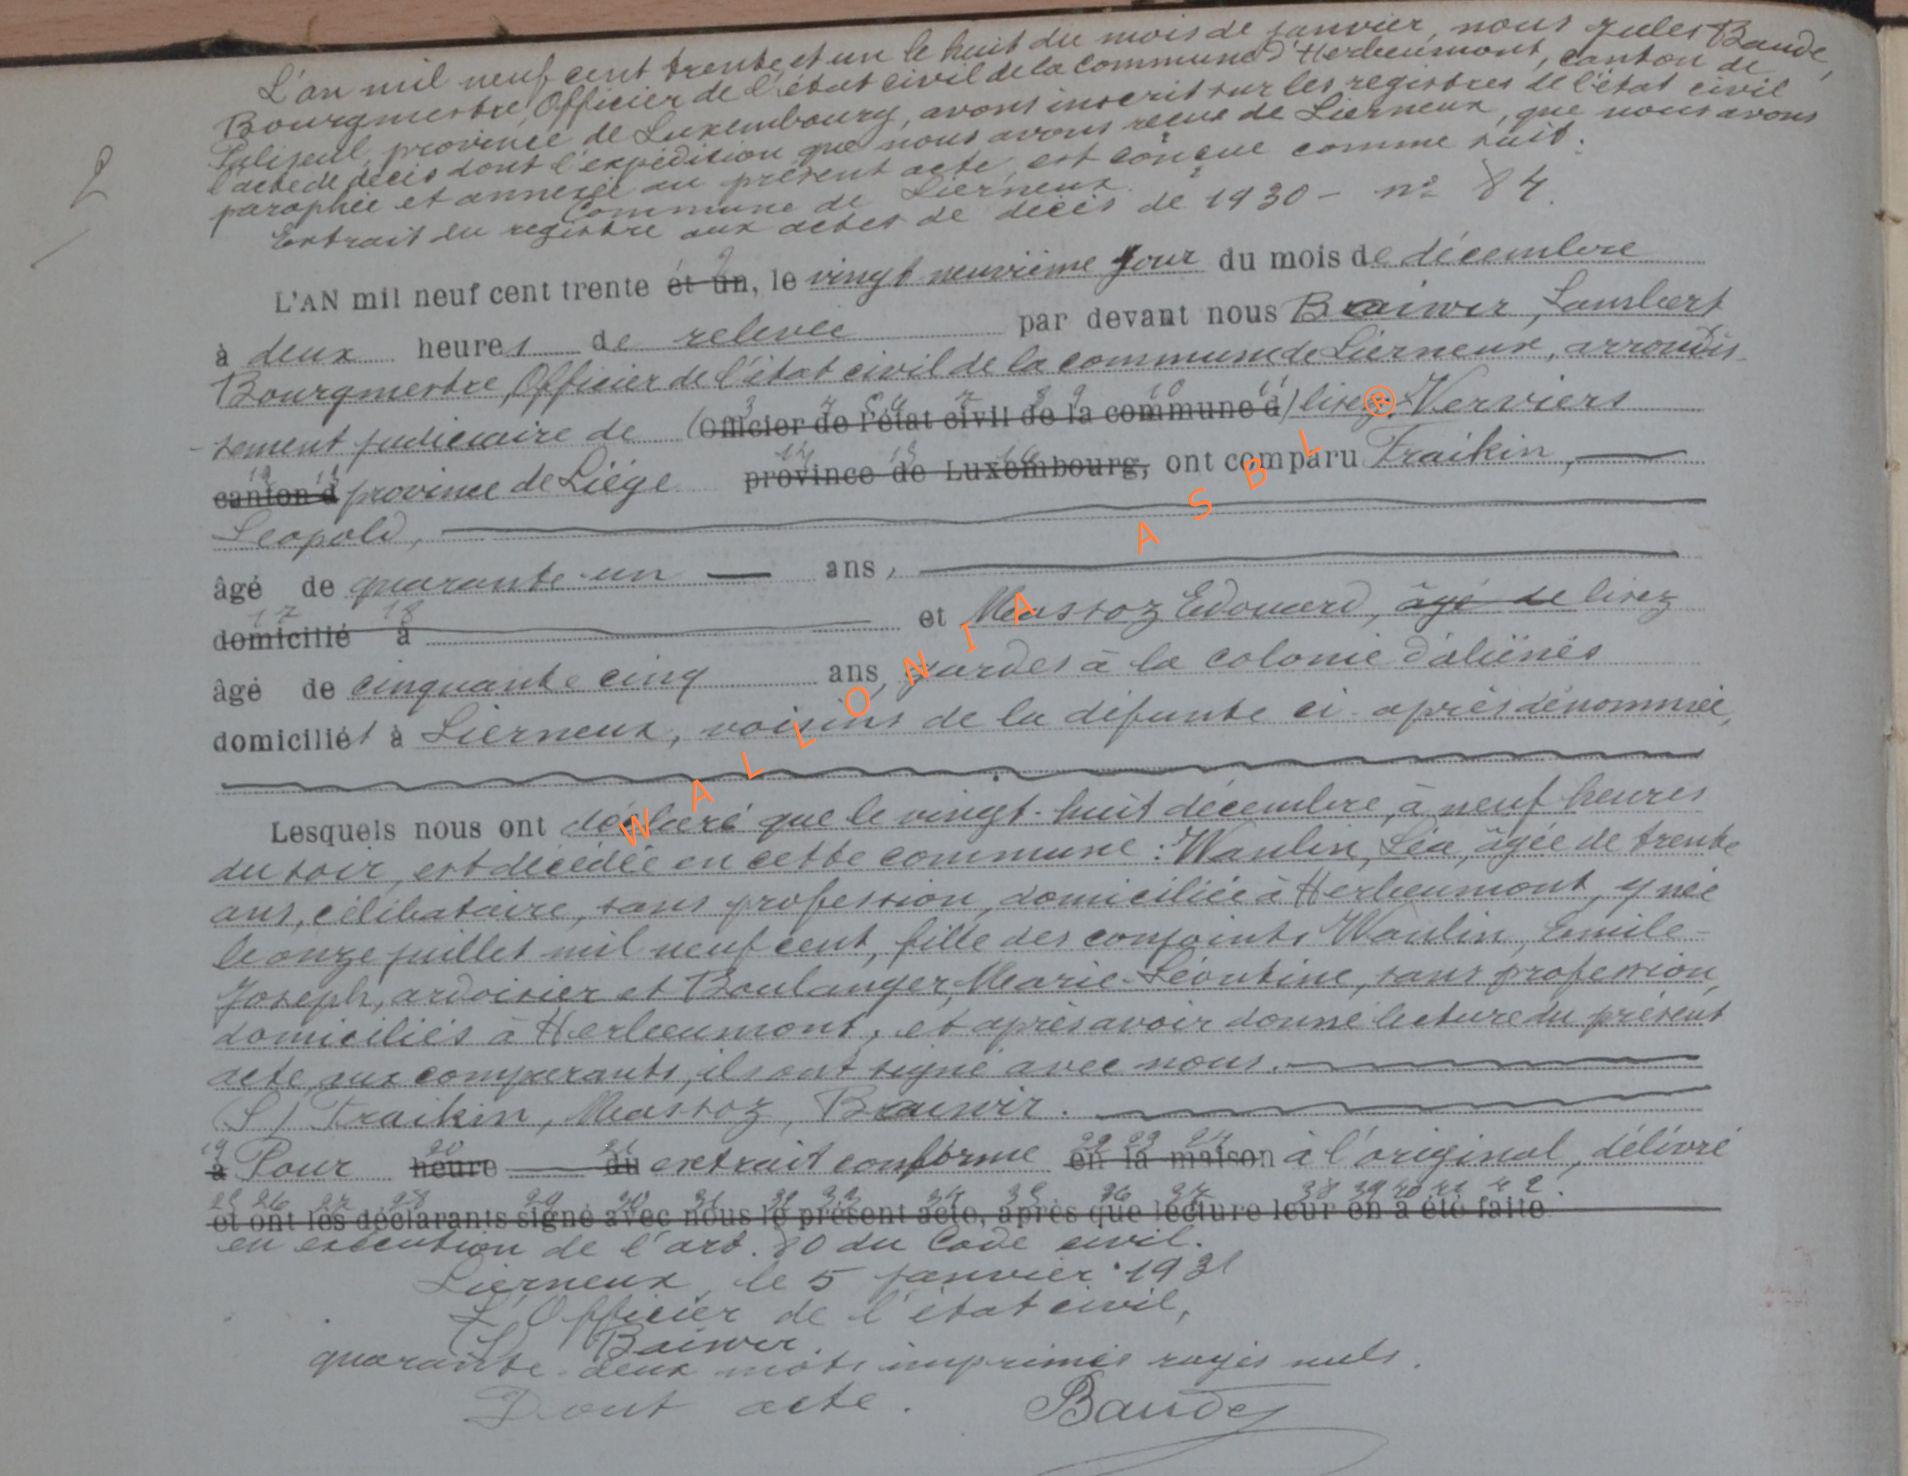 L'an mil neuf cent trente et un le huit du mois de janvier, nous Jules Baude,
Bourgmestre, Officier de l'état civil de la commune d'Herbeumont, canton de
Paliseul, province de Luxembourg, avons inscrit sur les registres de l'état civil
l'acte de décès dont l'expédition que nous avons reçue de Lierneux, que nous avons
paraphée et annexée au présent acte, est conçue comme suit:
Commune de Lierneux.
2
Extrait du registre aux actes de décès de 1930 - n° 84.
L'AN mil neuf cent trente et un, le vingt neuvième jour du mois de décembre
à deux heures de relevée par devant nous Baiwir, Lambert
Bourgmestre, Officier de l'état civil de la commune de Lierneux, arrondis-
sement judiciaire de (Officier de l'état civil de la commune d) lisez Verviers
canton d province de Liége province de Luxembourg, ont comparu Fraikin,
Leopold,
âgé de quarante-un ans,
domicilié à et Massoz Edouard, âgé de lisez
âgé de cinquante cinq ans, gardes à la colonie d'aliénés
domiciliés à Lierneux, voisins de la défunte ci-après dénommée,
Lesquels nous ont déclaré que le vingt-huit décembre, à neuf heures
du soir, est décédée en cette commune: Waulin, Léa, âgée de trente
ans, célibataire, sans profession, domiciliée à Herbeumont, y née
le onze juillet mil neuf cent, fille des conjoints Waulin, Emile-
Joseph, ardoisier et Boulanger, Marie-Léontine, sans profession,
domiciliés à Herbeumont, et après avoir donné lecture du présent
acte, aux comparants, ils ont signé avec nous.
(S) Fraikin, Massoz, Baiwir.
à Pour heure du extrait conforme en la maison à l'original, délivré
et ont les déclarants signé avec nous le présent acte, après que lecture leur en a été faite
en exécution de l'art. 80 du Code civil.
Lierneux, le 5 janvier 1931
L'Officier de l'état civil,
(S) Baiwir.
quarante-deux mots imprimés rayés nuls.
Dont acte. Baude
WALLONIA ASBL ®